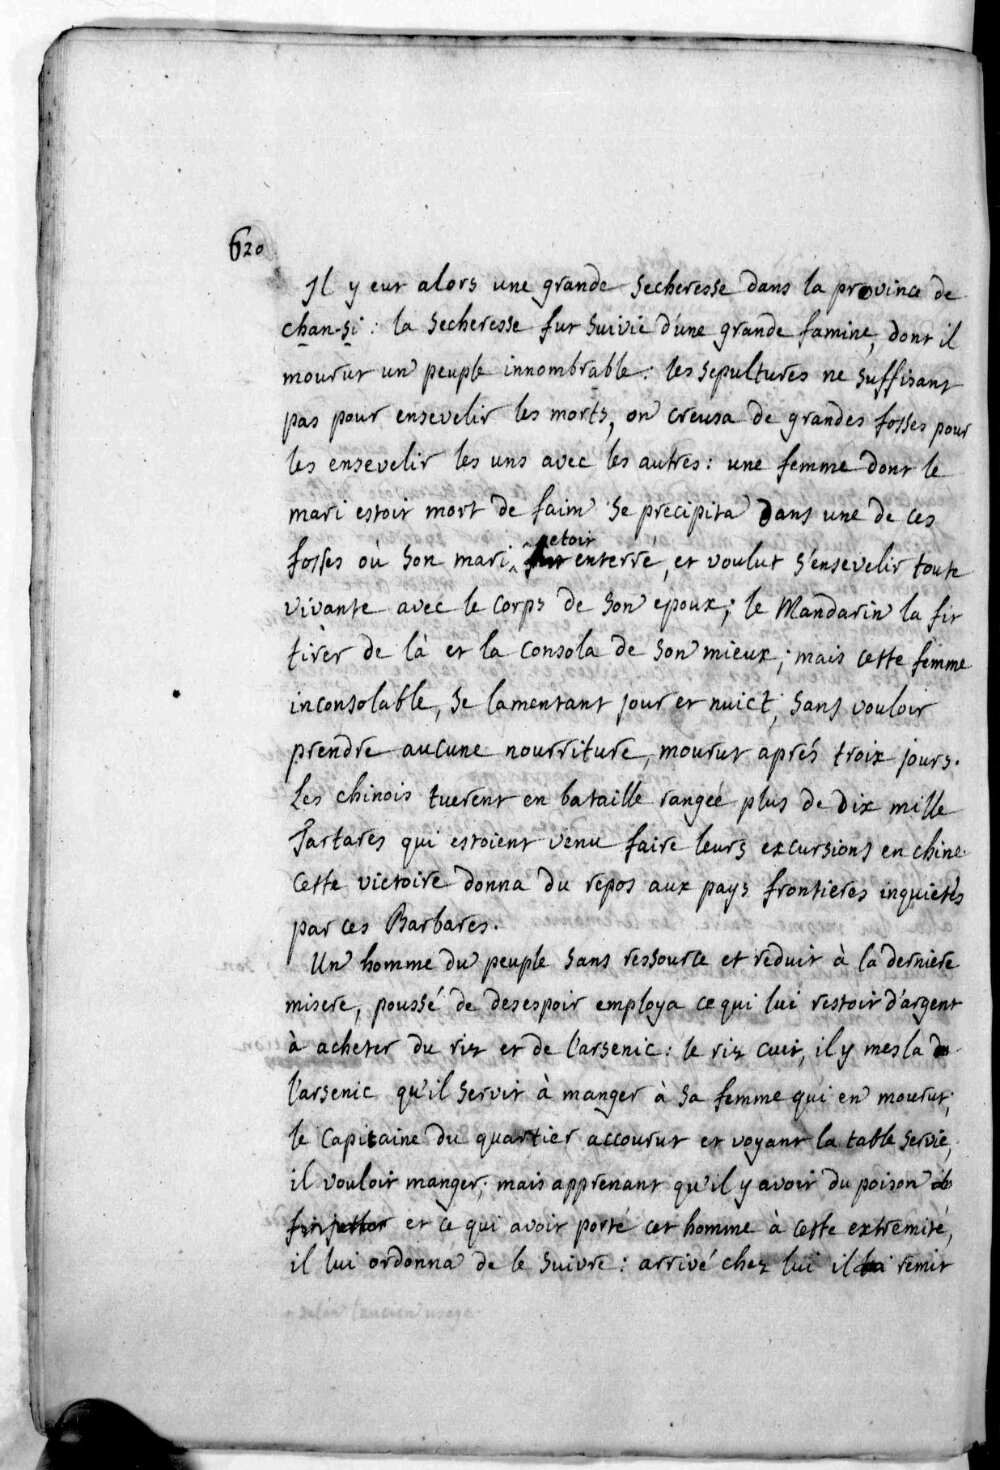 620
Il y eut alors une grande secheresse dans la province de
chan-si : la secheresse fut suivie d'une grande famine, dont il
mourut un peuple innombrable : les sepultures ne suffisant
pas pour ensevelir les morts, on creusa de grandes fosses pour
les ensevelir les uns avec les autres : une femme dont le
mari estoit mort de faim se precipita dans une de ces
etoit
fosses où son mari ^ fut enterré, et voulut s'ensevelir toute
vivante avec le corps de son epoux ; le Mandarin la fit
tirer de là et la consola de son mieux ; mais cette femme
inconsolable, se lamentant jour et nuict, sans vouloir
prendre aucune nourriture, mourut aprés troix jours.
Les chinois tuerent en bataille rangée plus de dix mille
Tartares qui estoient venu faire leurs excursions en chine.
Cette victoire donna du repos aux pays frontieres inquietés
par ces Barbares.
Un homme du peuple sans ressource et reduit à la derniere
misere, poussé de desespoir employa ce qui lui restoit d'argent
à acheter du riz et de l'arsenic : le riz cuit, il y mesla de
l'arsenic qu'il servit à manger à sa femme qui en mourut,
le Capitaine du quartier accourut et voyant la table servie,
il vouloit manger, mais apprenant qu'il y avoit du poison
et ce qui avoit porté cet homme à cette extremité,
il lui ordonna de le suivre : arrivé chez lui il remit
selon l'ancien usage